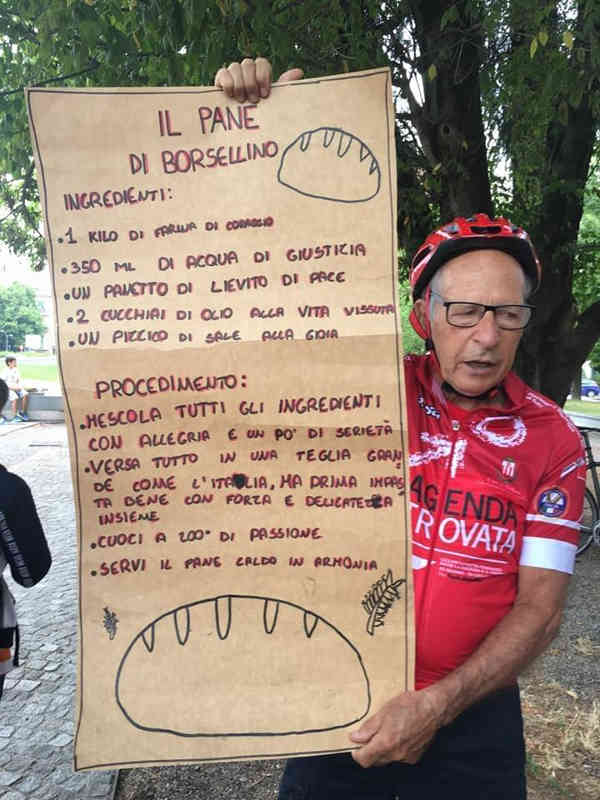 IL PANE
DI BORSELLINO
INGREDIENTI:
• 1 KILO DI FARINA DI CORAGGIO
• 350 ML DI ACQUA DI GIUSTICIA
• UN PANETTO DI LIEVITO DI PACE
• 2 CUCCHIAI DI OLIO ALLA VITA VISSUTA
• UN PIZZICO DI SALE ALLA GIOIA
PROCEDIMENTO:
• MESCOLA TUTTI GLI INGREDIENTI
CON ALLEGRIA E UN PO' DI SERIETÀ
• VERSA TUTTO IN UNA TEGLIA GRAN
DE COME L'ITALIA, MA PRIMA IMPAS
TA BENE CON FORZA E DELICATEZZA
INSIEME
• CUOCI A 200° DI PASSIONE
• SERVI IL PANE CALDO IN ARMONIA
AGENDA
RITROVATA